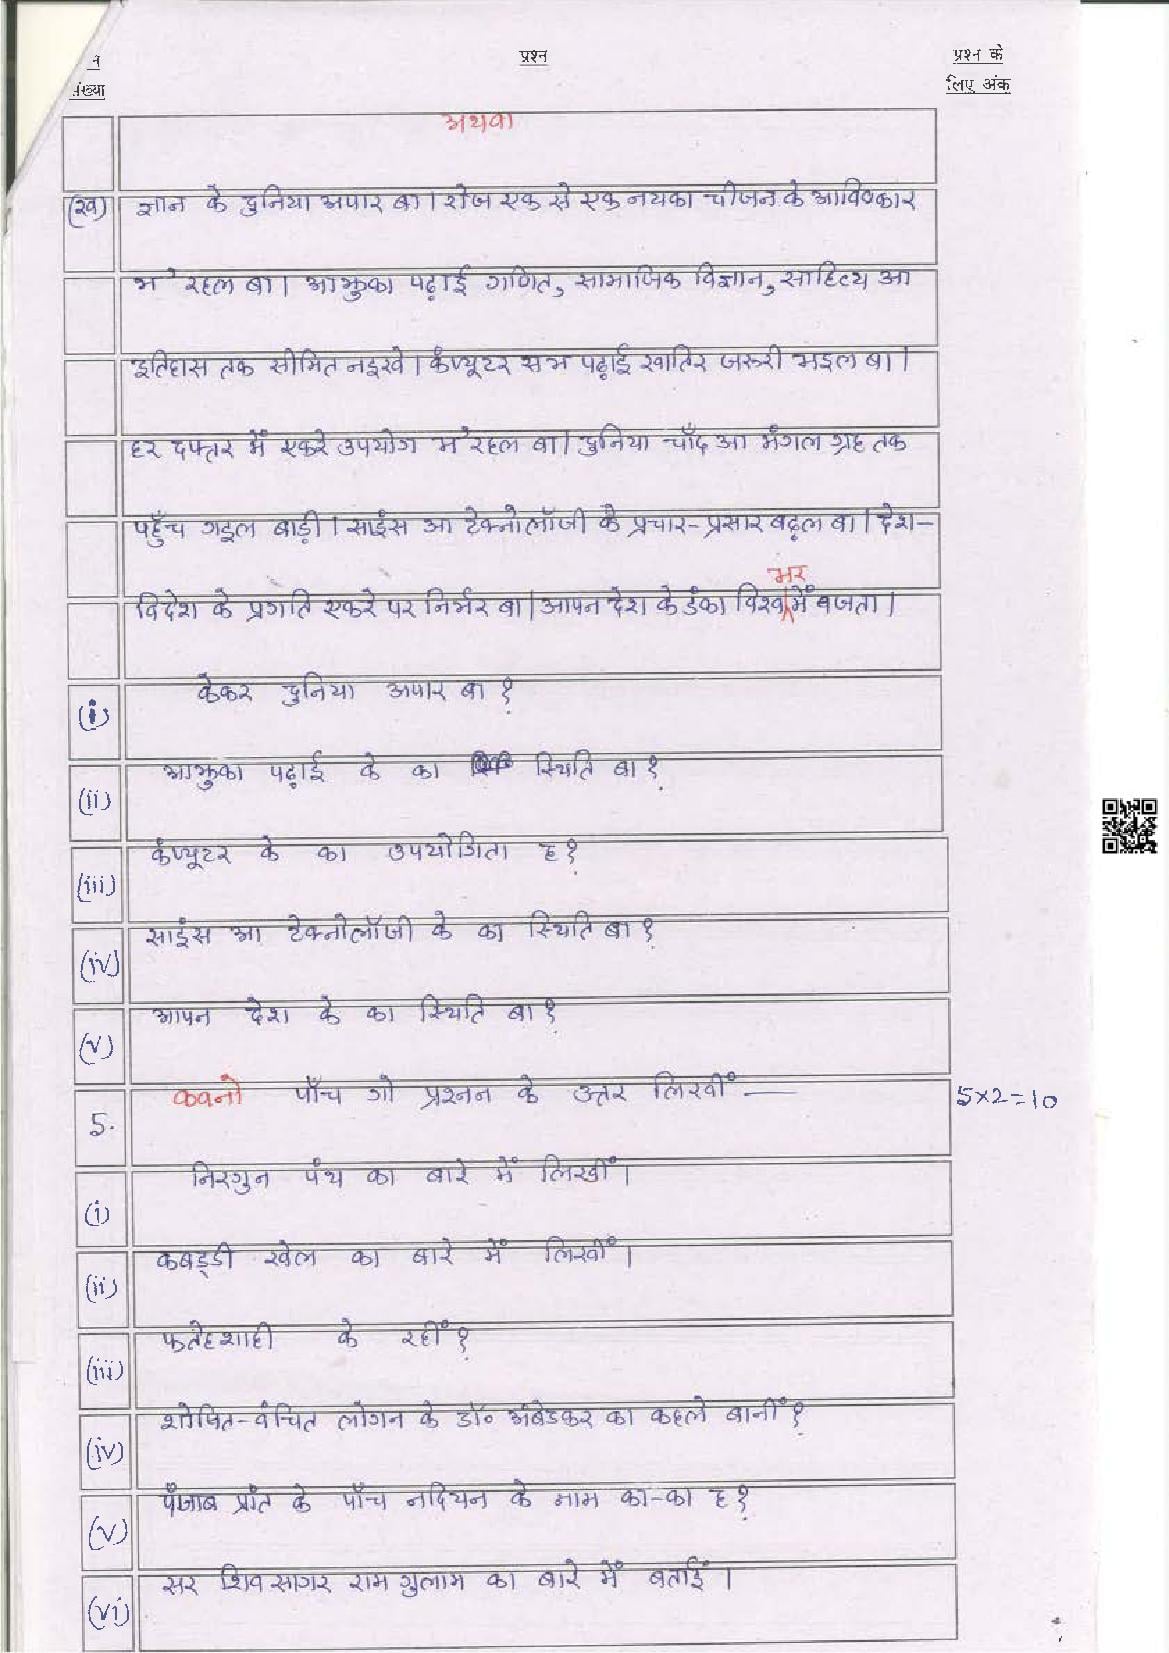 न
संख्या
प्रश्न
प्रश्न के
लिए अंक
अथवा
(ख) ज्ञान के दुनिया अपार बा। रोज एक से एक नयका चीजन के आविष्कार
भ रहल बा। आझुका पढ़ाई गणित, सामाजिक विज्ञान, साहित्य आ
इतिहास तक सीमित नइखे। कंप्यूटर सभ पढ़ाई खातिर जरूरी भइल बा।
हर दफ्तर में एकरे उपयोग भ रहल बा। दुनिया चाँद आ मंगल ग्रह तक
पहुँच गइल बाड़ी। साइंस आ टेक्नोलॉजी के प्रचार-प्रसार बढ़ल बा। देश-
विदेश के प्रगति एकरे पर निर्भर बा। आपन देश के डंका विश्व भर में बजता।
(i) केकर दुनिया अपार बा?
(ii) आझुका पढ़ाई के का स्थिति बा?
(iii) कंप्यूटर के का उपयोगिता ह?
(iv) साइंस आ टेक्नोलॉजी के का स्थिति बा?
(v) आपन देश के का स्थिति बा?
5. कवनो पाँच गो प्रश्नन के उत्तर लिखीं — 5×2=10
(i) निरगुन पंथ का बारे में लिखीं।
(ii) कबड्डी खेल का बारे में लिखीं।
(iii) फतेहशाही के रहीं?
(iv) शोषित-वंचित लोगन के डॉ० अंबेडकर का कहले बानीं?
(v) पंजाब प्रांत के पाँच नदियन के नाम का-का ह?
(vi) सर शिवसागर राम गुलाम का बारे में बताईं।